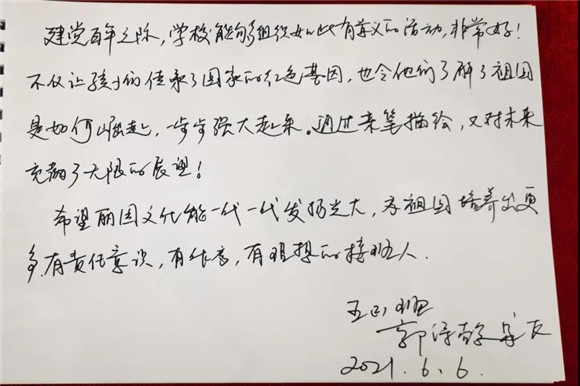 建党百年之际，学校能够组织如此有意义的活动，非常好！
不仅让孩子们传承了国家的红色基因，也令他们了解了祖国
是如何崛起，一步步强大起来。通过亲笔描绘，又对未来
充满了无限的展望！
希望丽园文化能一代一代发扬光大，为祖国培养出更
多有责任意识，有作为，有理想的接班人．
五(3)班
郭 家长
2021.6.6.